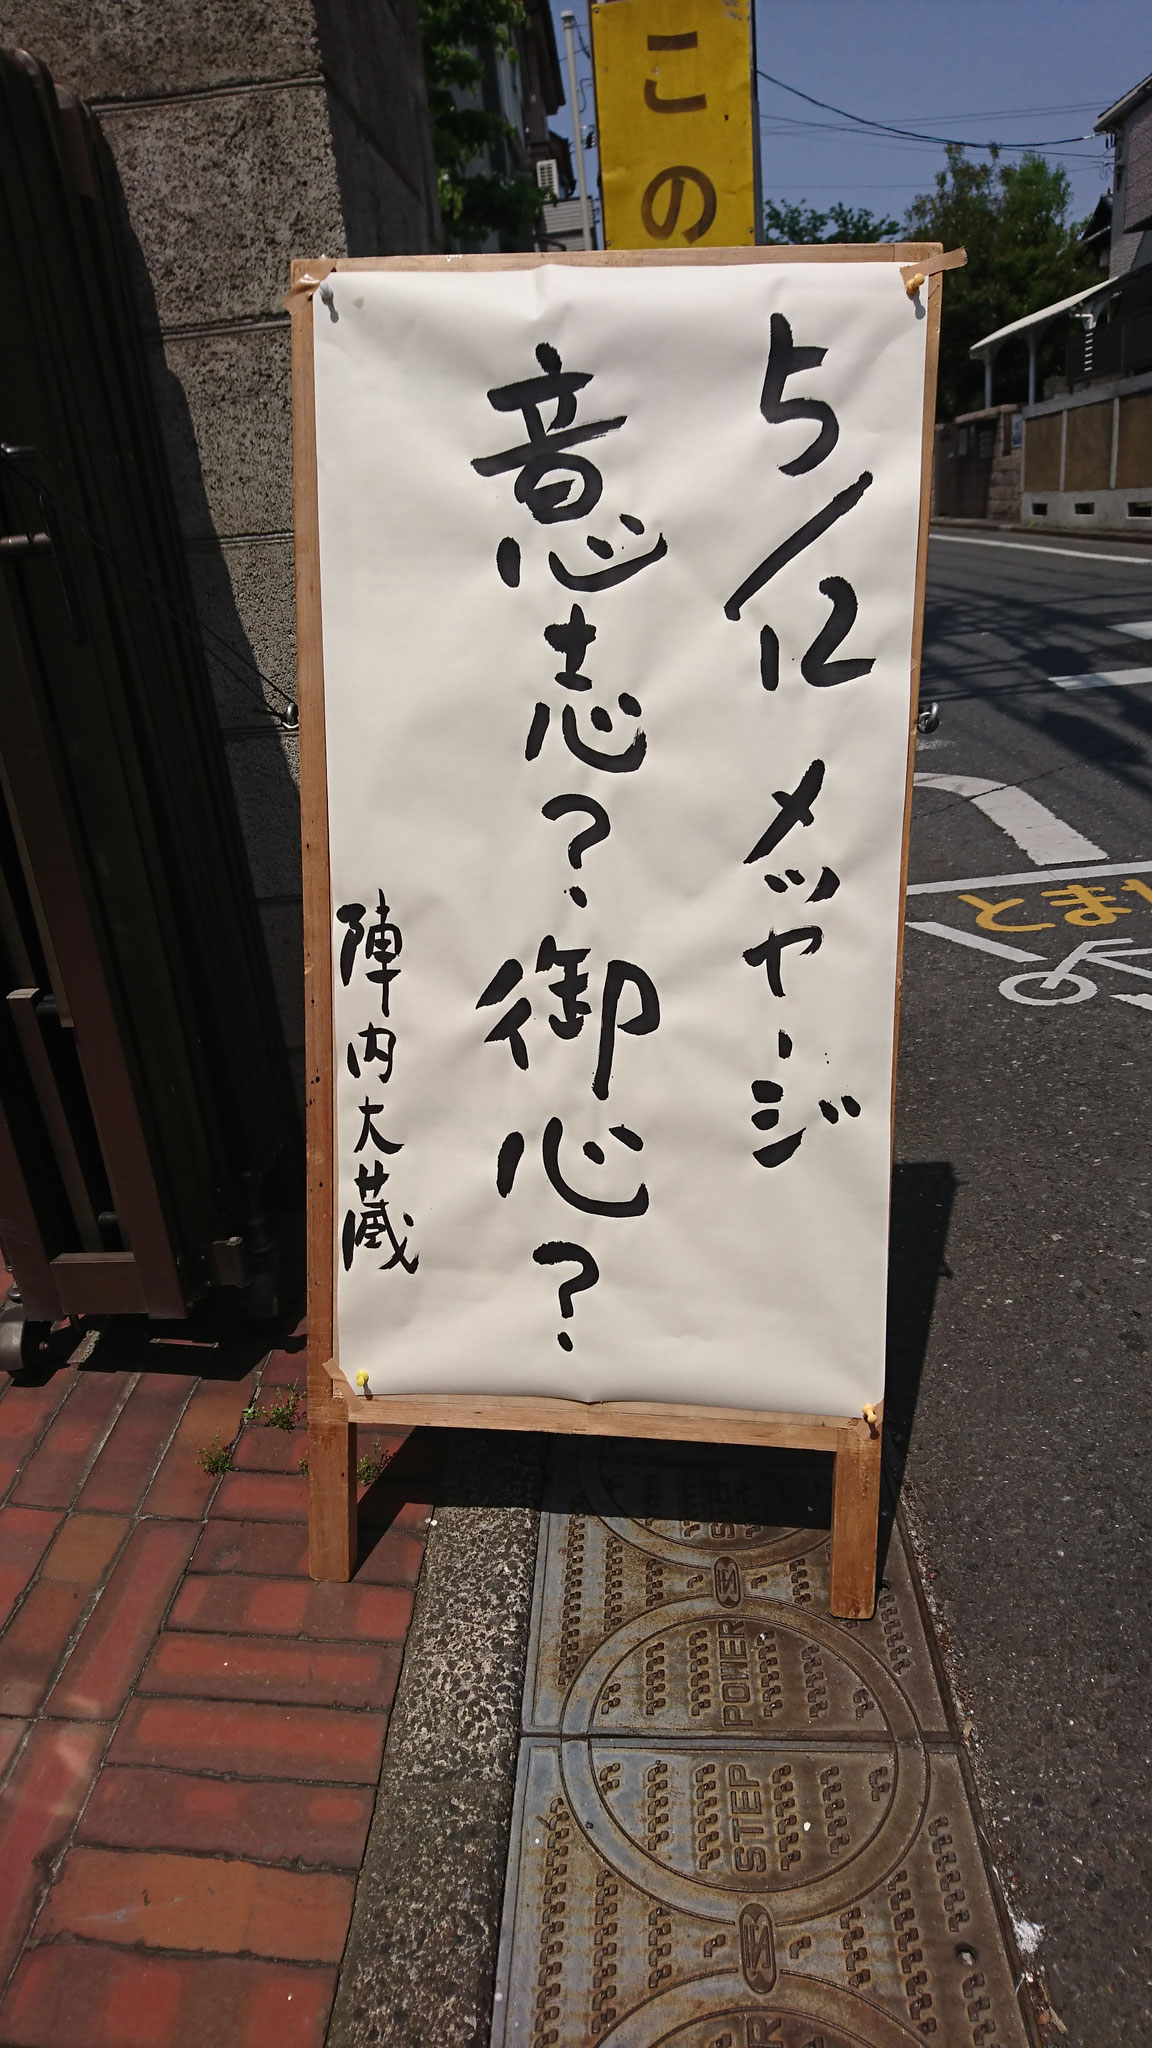 この
5/12 メッセージ
意志?御心?
陣内大蔵
とま
STEP
POWER
STEP